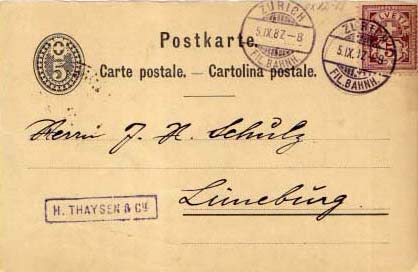 Postkarte.
Carte postale. — Cartolina postale.
5
ZÜRICH
5.IX.87.-8
FIL. BAHNH.
ZÜRICH
5.IX.87.-8
FIL. BAHNH.
HELVETIA
Herrn J. H. Schulz
Lüneburg.
H. THAYSEN & Cº